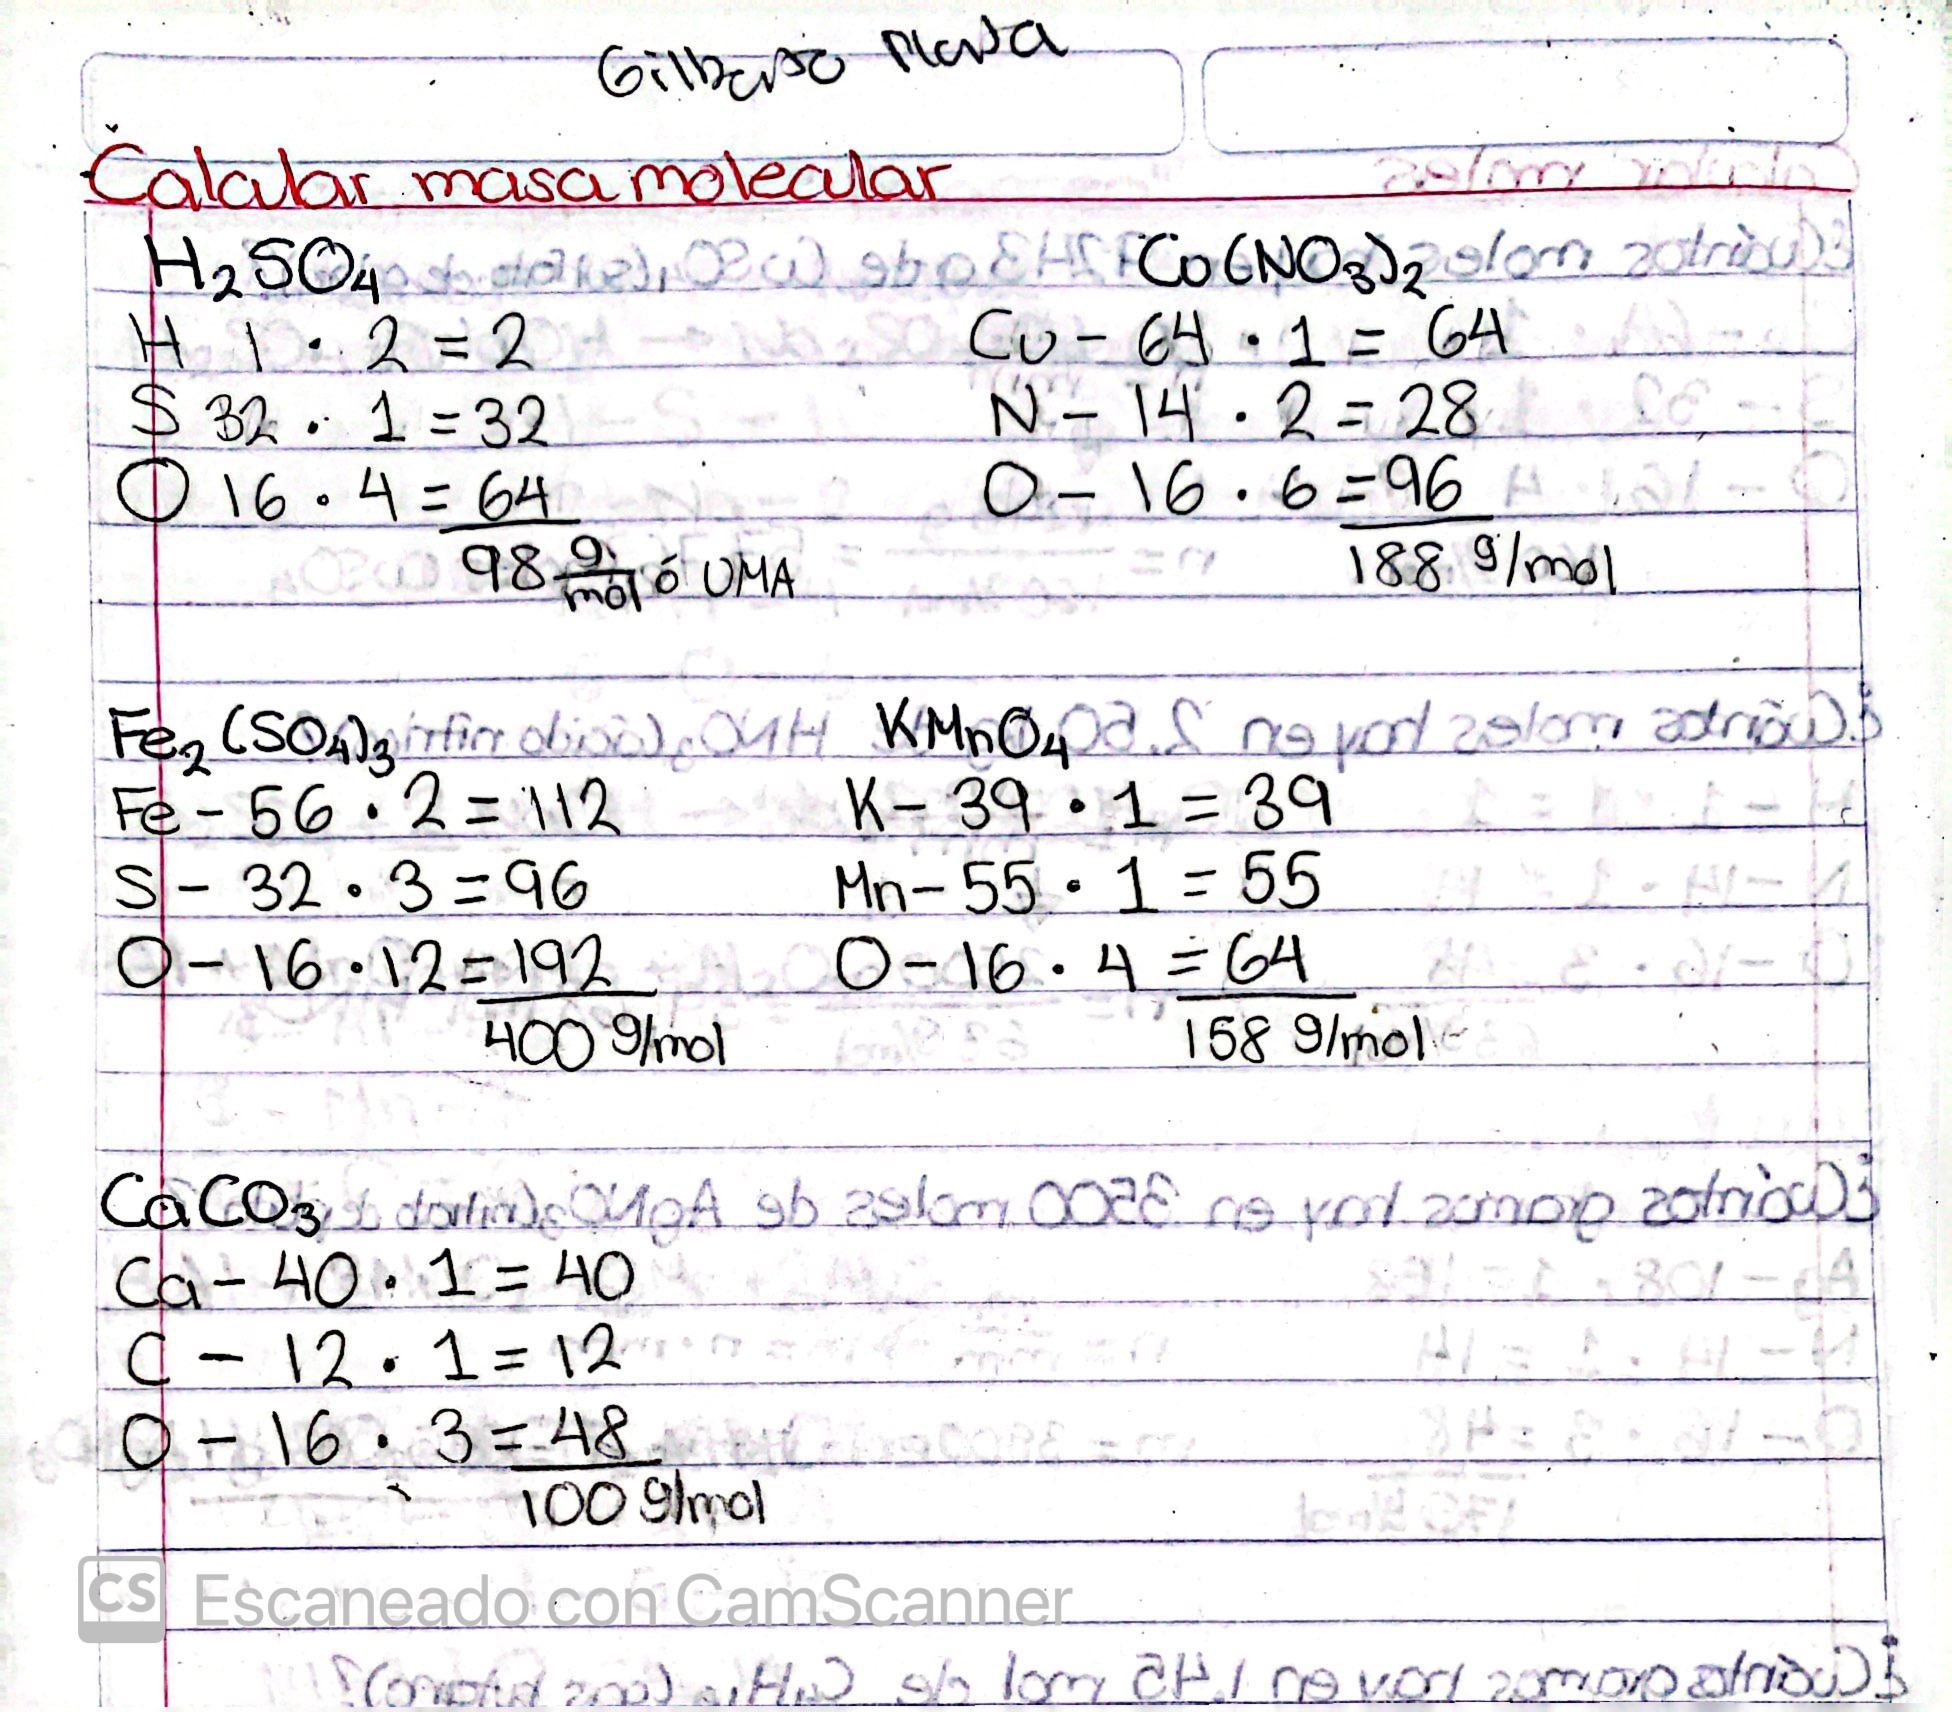 Gilberto
Calcular masa molecular
H₂SO₄
H 1 · 2 = 2
S 32 · 1 = 32
O 16 · 4 = 64
98 g/mol ó UMA
Cu(NO₃)₂
Cu - 64 · 1 = 64
N - 14 · 2 = 28
O - 16 · 6 = 96
188 g/mol
Fe₂(SO₄)₃
Fe - 56 · 2 = 112
S - 32 · 3 = 96
O - 16 · 12 = 192
400 g/mol
KMnO₄
K - 39 · 1 = 39
Mn - 55 · 1 = 55
O - 16 · 4 = 64
158 g/mol
CaCO₃
Ca - 40 · 1 = 40
C - 12 · 1 = 12
O - 16 · 3 = 48
100 g/mol
CS Escaneado con CamScanner